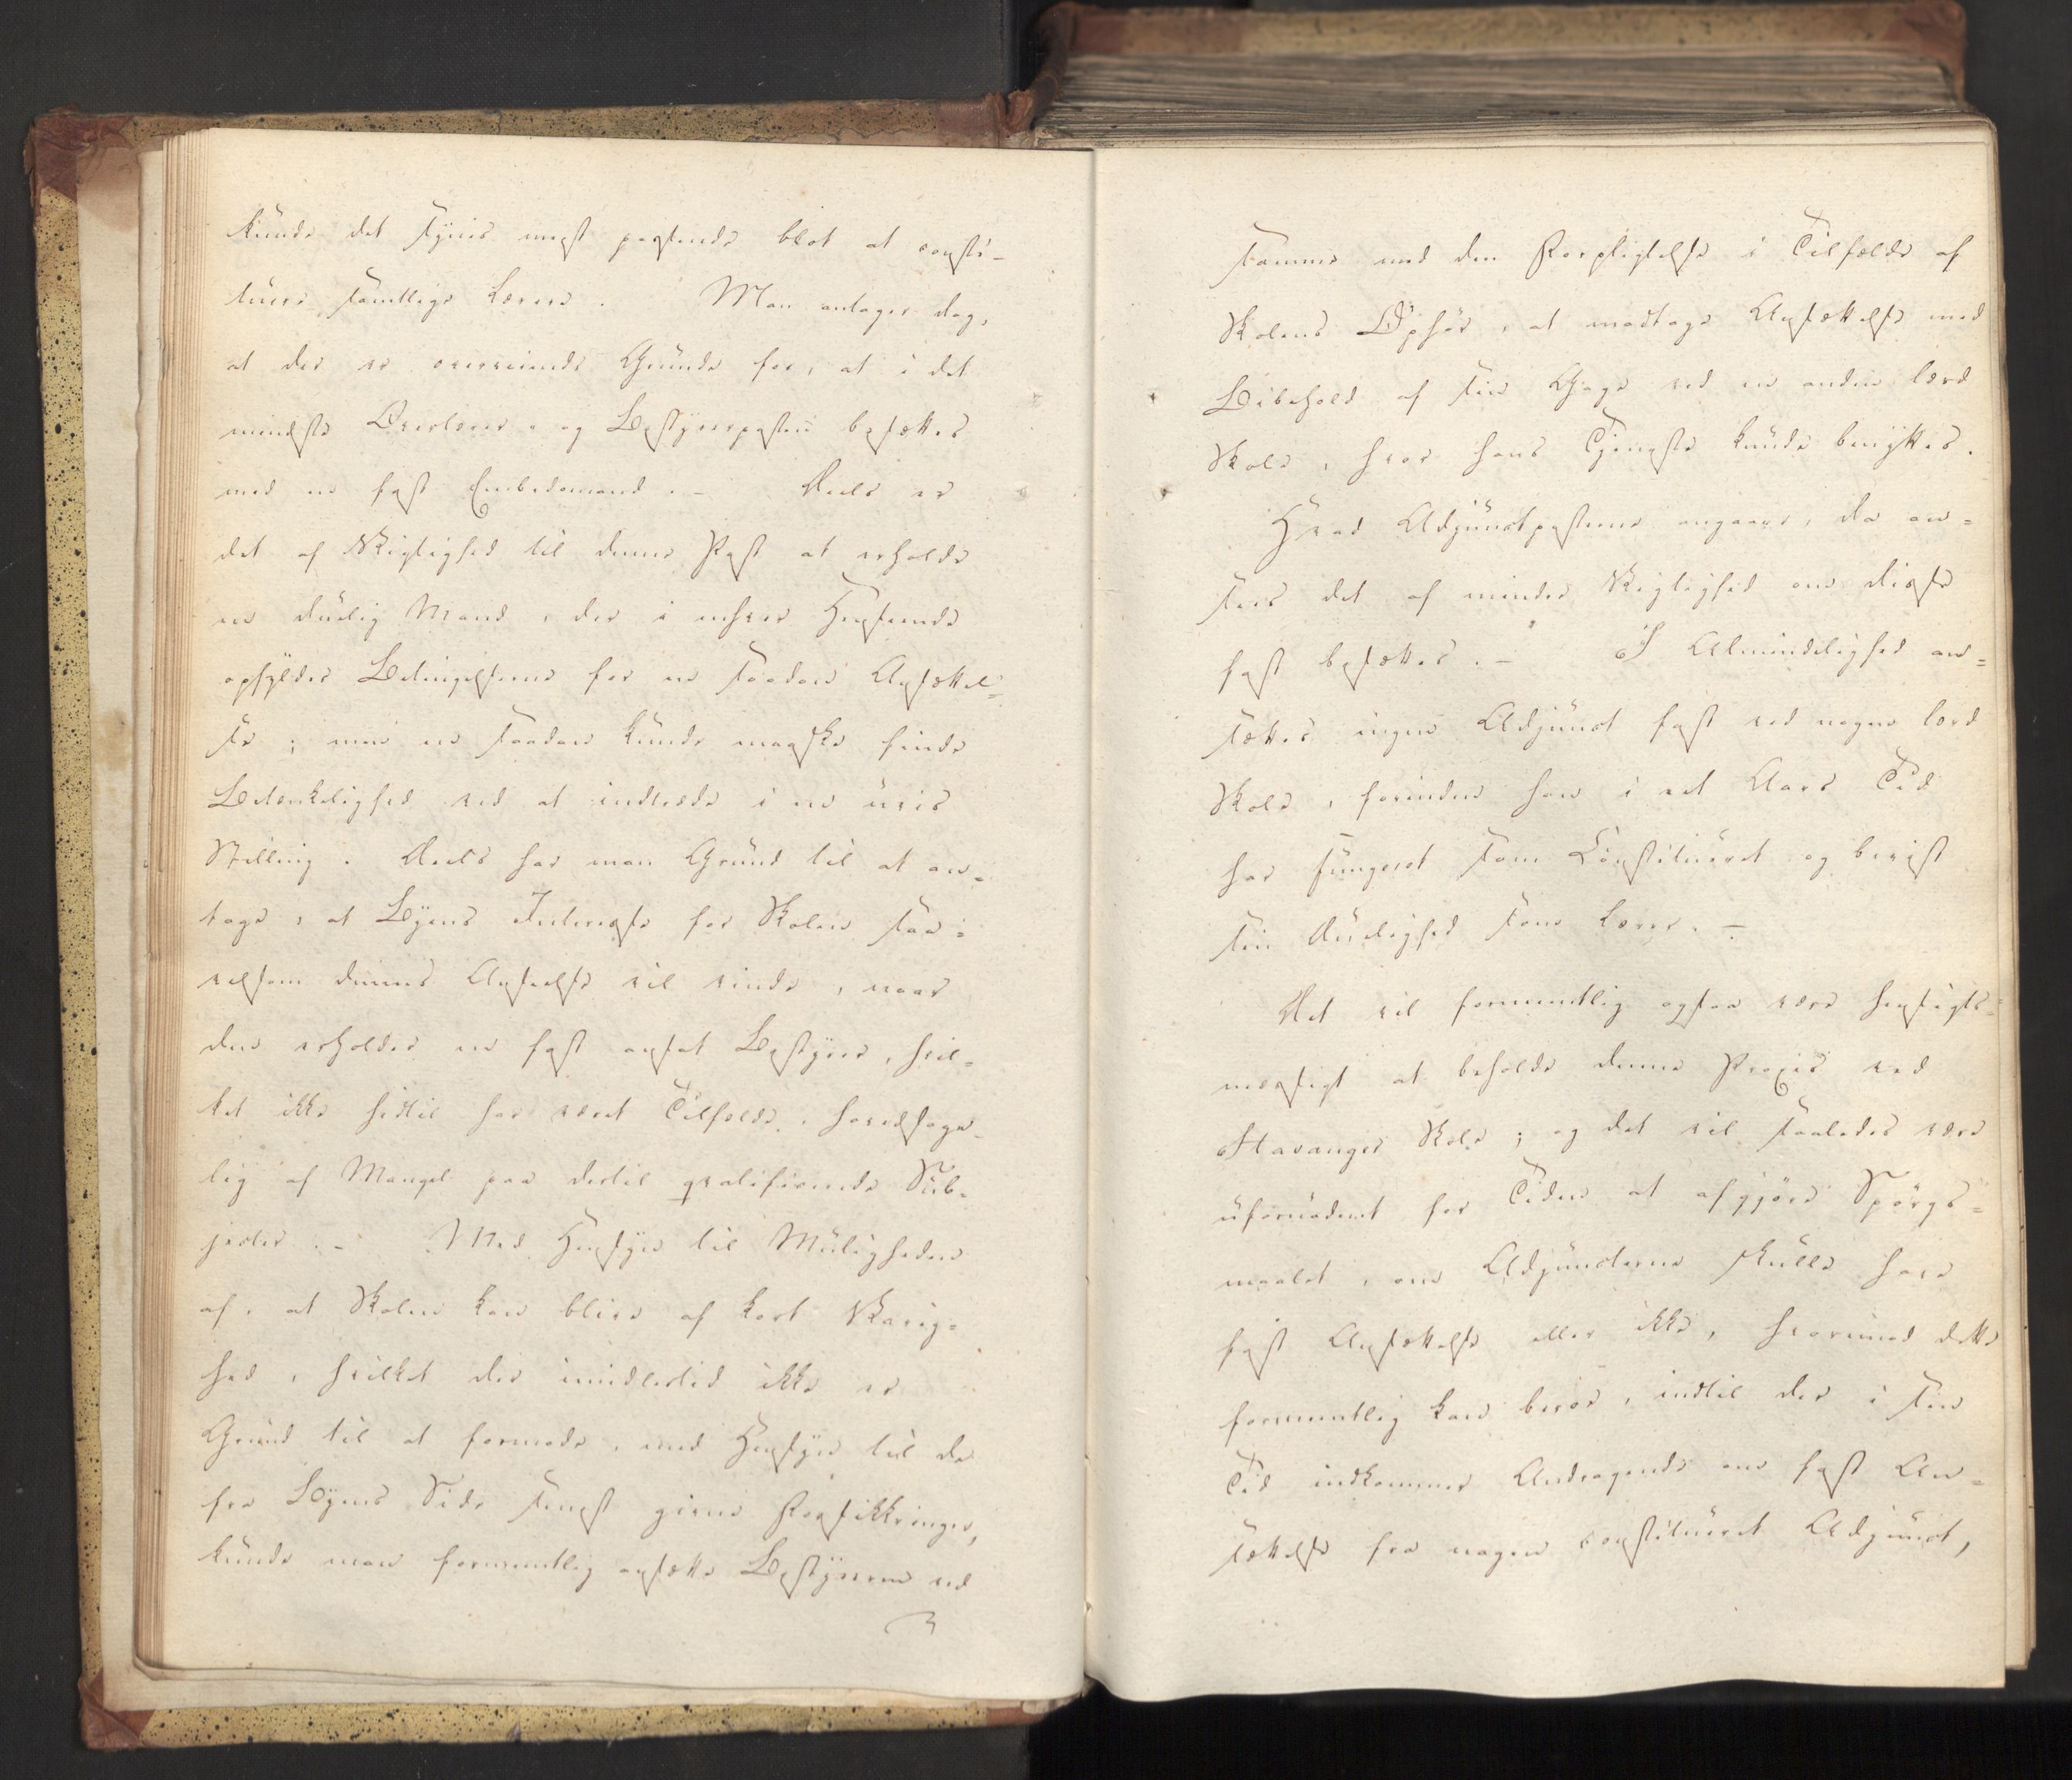 kunde det synes mest passende blot at consti-
tuere samtlige Lærere. Man antager dog,
at der er overveiende Grunde for, at i det
mindste Overlærer- og Bestyrerposten besættes
med en fast Embedsmand. – Deels er
det af Vigtighed til denne Post at erholde
en duelig Mand, der i enhver Henseende
opfylder Betingelserne for en saadan Ansættel-
se; men en saadan kunde maaske finde
Betænkelighed ved at indtræde i en uvis
Stilling. Deels har man Grund til at an-
tage, at Byens Interesse for Skolen saa-
velsom dennes Anseelse vil vinde, naar
den erholder en fast ansat Bestyrer, hvil-
ket ikke hidtil har været Tilfælde, hovedsage-
lig af Mangel paa dertil qvalificerede Sub-
jecter. – Med Hensyn til Muligheden
af, at Skolen kan blive af kort Varig-
hed, hvilket der imidlertid ikke er
Grund til at formode, med Hensyn til de
fra Byens Side senest givne Forsikkringer,
kunde man formeentlig ansætte Bestyreren ved
samme med den Forpligtelse i Tilfælde af
Skolens Ophør, at modtage Ansættelse med
Bibehold af sin Gage ved en anden lærd
Skole, hvor hans Tjeneste kunde benyttes.
Hvad Adjunctposterne angaaer, da an-
sees det af mindre Vigtighed om disse
fast besættes. – I Almindelighed an-
sættes ingen Adjunct fast ved nogen lærd
Skole, forinden han i eet Aars Tid
har fungeret som Constitueret og beviist
sin Duelighed som Lærer. –
Det vil formeentlig ogsaa være hensigts-
mæssigt at beholde denne Praxis ved
Stavanger Skole; og det vil saaledes være
ufornødent for Tiden at afgjøre Spørgs-
maalet, om Adjuncterne skulle have
fast Ansættelse eller ikke, hvorimod dette
formeentlig kan beroe, indtil der i sin
Tid indkommer Andragende om fast An-
sættelse fra nogen constitueret Adjunct,